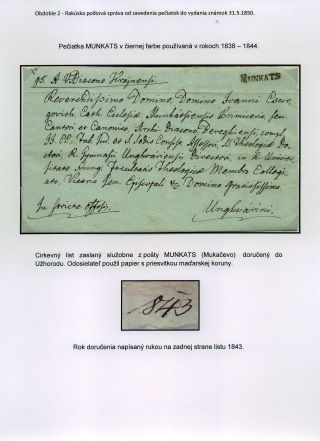 Obdobie 2 - Rakúska poštová správa od zavedenia pečiatok do vydania známok 31.5.1850.
Pečiatka MUNKATS v čiernej farbe používaná v rokoch 1838 – 1844.
MUNKATS
Reverendissimo Domino, Domino Joanni
Cath. Ecclesiae Munkatsiensis
Cantori et Canonico Arch Diacono Bereghiensi,
Theologiae
R. Gymnasii Unghvariensi Directori, in R.
Hung. Facultatis Theologicae Membro
Vicario Gen. Episcopali Domino Gratiosissimo
Unghvarini
Cirkevný list zaslaný služobne z pošty MUNKATS (Mukačevo) doručený do
Užhorodu. Odosielateľ použil papier s priesvitkou maďarskej koruny.
843
Rok doručenia napísaný rukou na zadnej strane listu 1843.